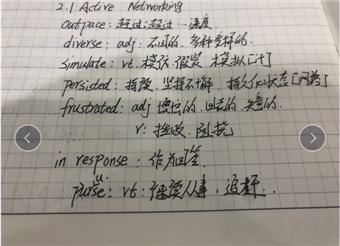 2.1 Active Networking
outpace: 超过;超过…速度
diverse: adj: 不同的. 多种多样的.
simulate: vt. 模仿. 假装. 模拟[计]
persisted: 持续. 坚持不懈. 持久化状态[网络]
frustrated: adj 懊恼的. 的. 失意的.
v: 挫败. 阻挠
in response: 作为回答.
puruse: vt: 继续从事, 追